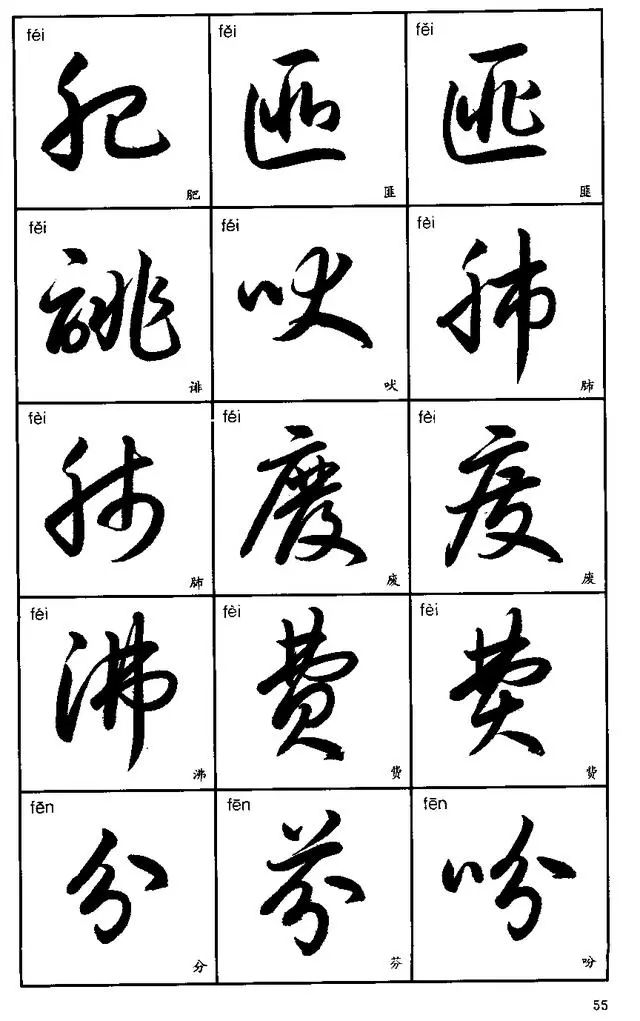 féi fěi fěi
肥 匪 匪
肥 匪 匪
fěi féi fèi
诽 吠 肺
诽 吠 肺
fèi féi fèi
肺 废 废
肺 废 废
féi fèi fèi
沸 费 费
沸 费 费
fēn fēn fēn
分 芬 吩
分 芬 吩
55